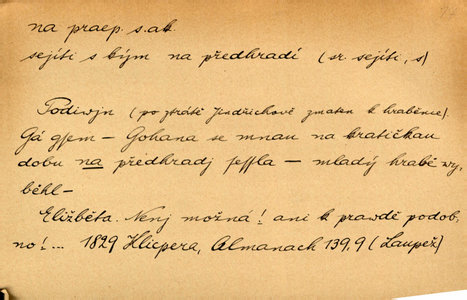 na praep. s. ak.
sejíti s kým na předhradí (sr. sejíti, s)
Podiwjn (po ztrátě Jindřichově zmaten k hraběnce).
Gá gsem – Gohana se mnau na kratičkau
dobu na předhradj seffla – mladý hrabě wy-
běhl –
Eližběta. Nenj možná! ani k prawdě podob-
no!... 1829 Klicpera, Almanach 139,9 (Laupež)